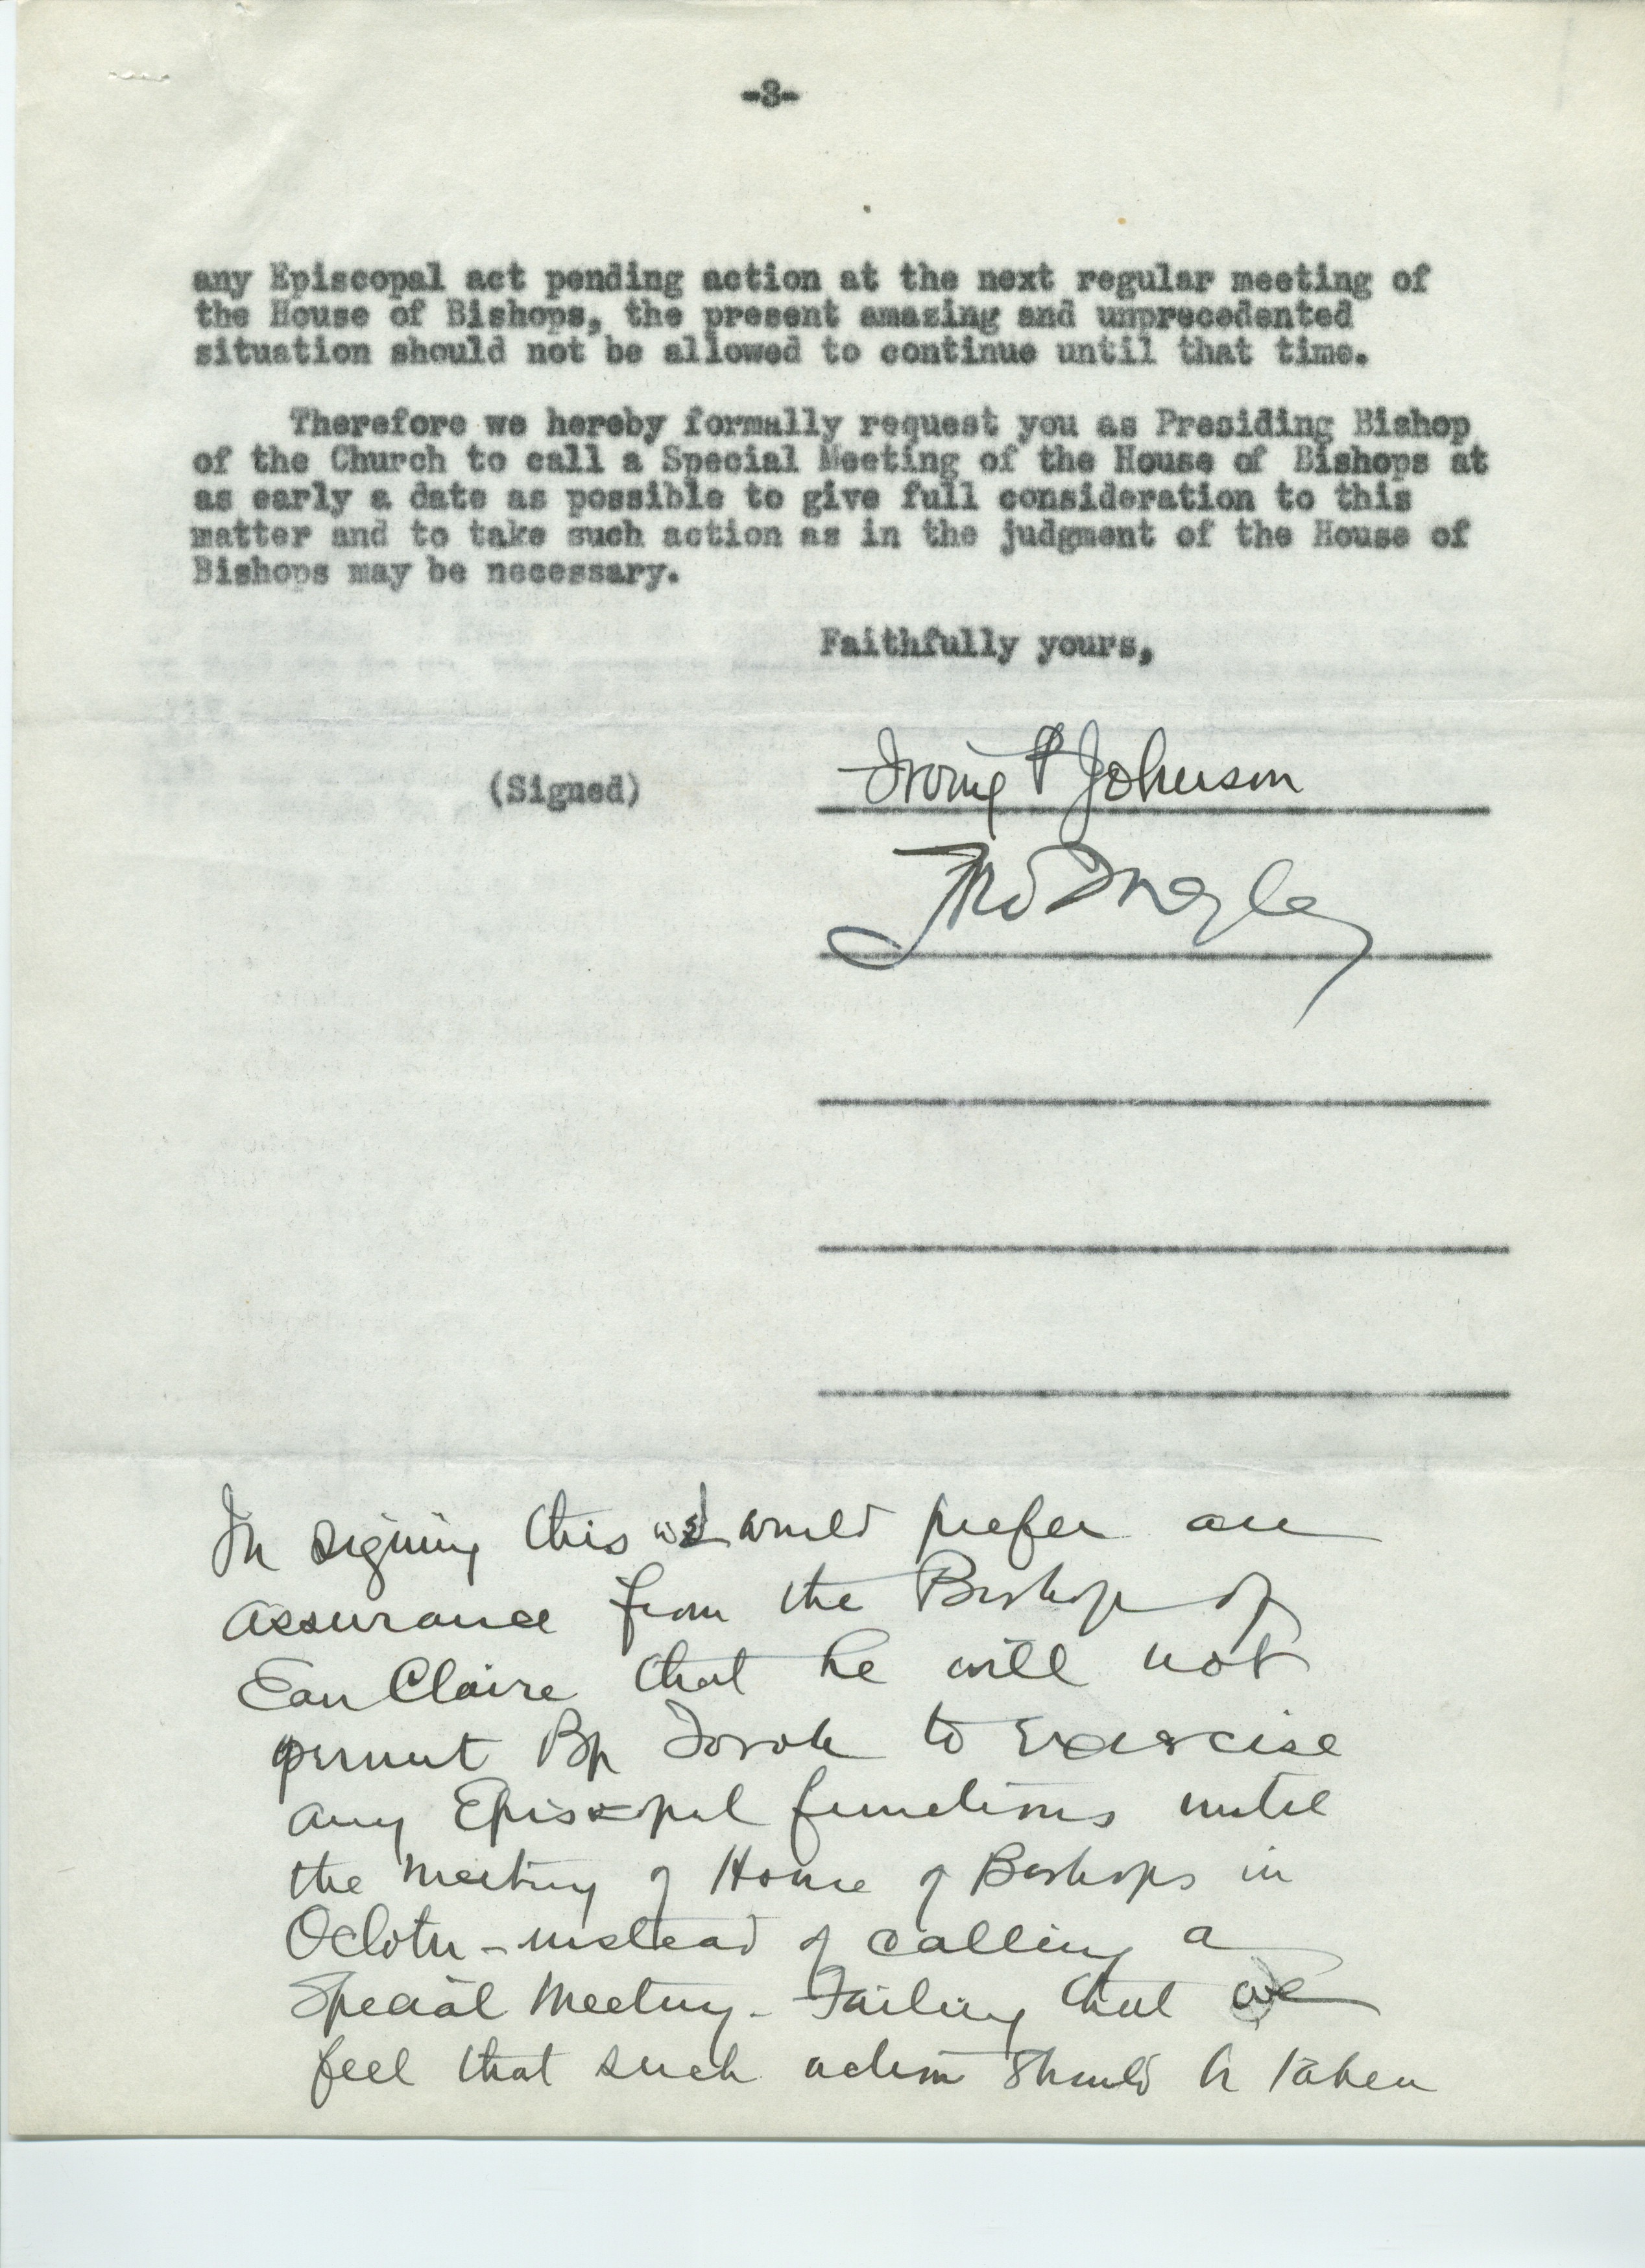 -3-
any Episcopal act pending action at the next regular meeting of
the House of Bishops, the present amazing and unprecedented
situation should not be allowed to continue until that time.
Therefore we hereby formally request you as Presiding Bishop
of the Church to call a Special Meeting of the House of Bishops at
as early a date as possible to give full consideration to this
matter and to take such action as in the judgment of the House of
Bishops may be necessary.
Faithfully yours,
(Signed) Irving P Johnson
Fred Ingley
In signing this we would prefer an
assurance from the Bishop of
Eau Claire that he will not
permit Bp Torok to exercise
any Episcopal functions until
the meeting of House of Bishops in
October - instead of calling a
Special Meeting - Failing that we
feel that such action should be taken